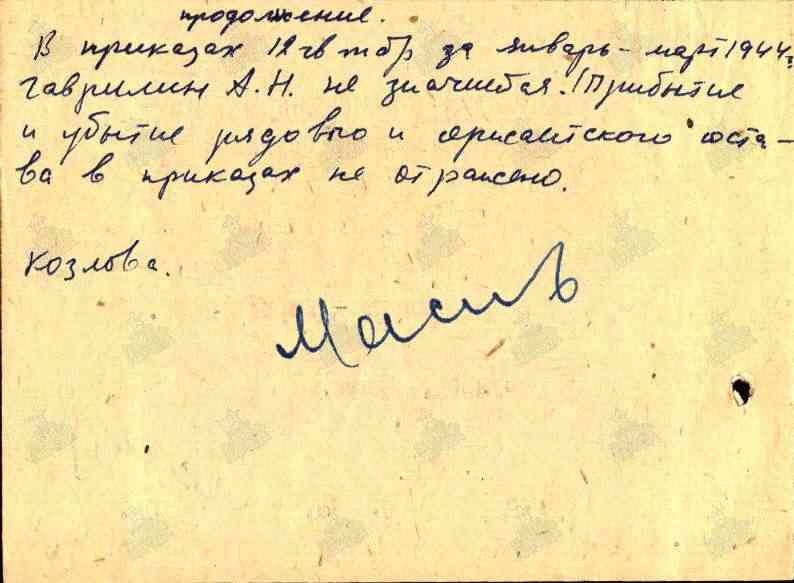 продолжение.
В приказах 12 гв тбр за январь - март 1944г
Гаврилин А.Н. не значится. (Прибытие
и убытие рядового и сержантского соста-
ва в приказах не отражено.
Козлова.